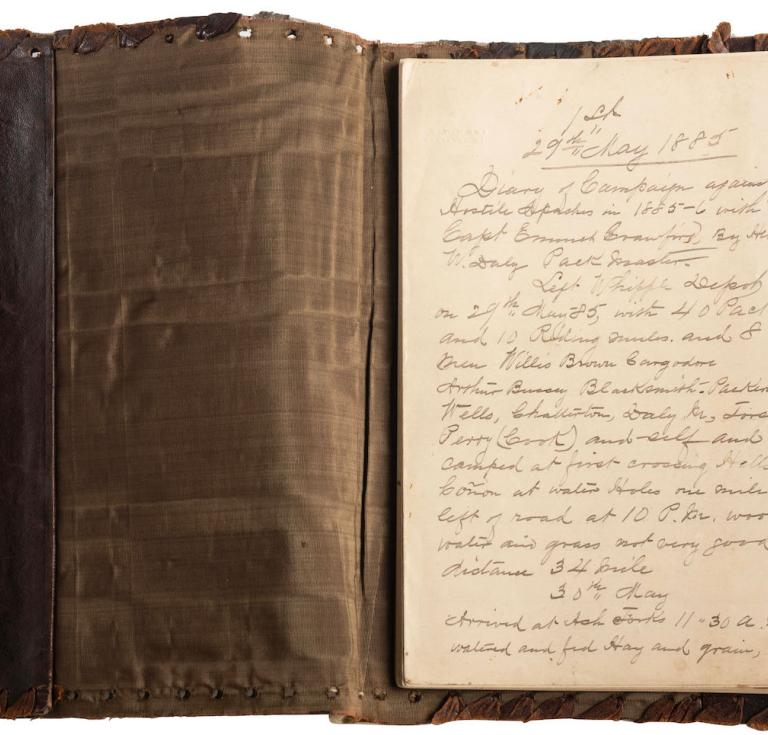 1st
29th May 1885
Diary of Campaign against
Hostile Apaches in 1885-6 with
Capt Emmet Crawford, By He
W. Daly Pack Master.
Left Whipple Depot
on 29th May 85, with 40 Pack
and 10 Riding mules. and 8
men Willis Brown Cargodore
Arthur Bussey Blacksmith. Packer
Wells, Chatterton, Daly Jr,
Perry (Cook) and self and
camped at first crossing Hell
Cañon at water Holes one mile
left of road at 10 P.M. woo
water and grass not very good
distance 34 mile
30th May
Arrived at Ash Forks 11-30 A.
watered and fed Hay and grain,